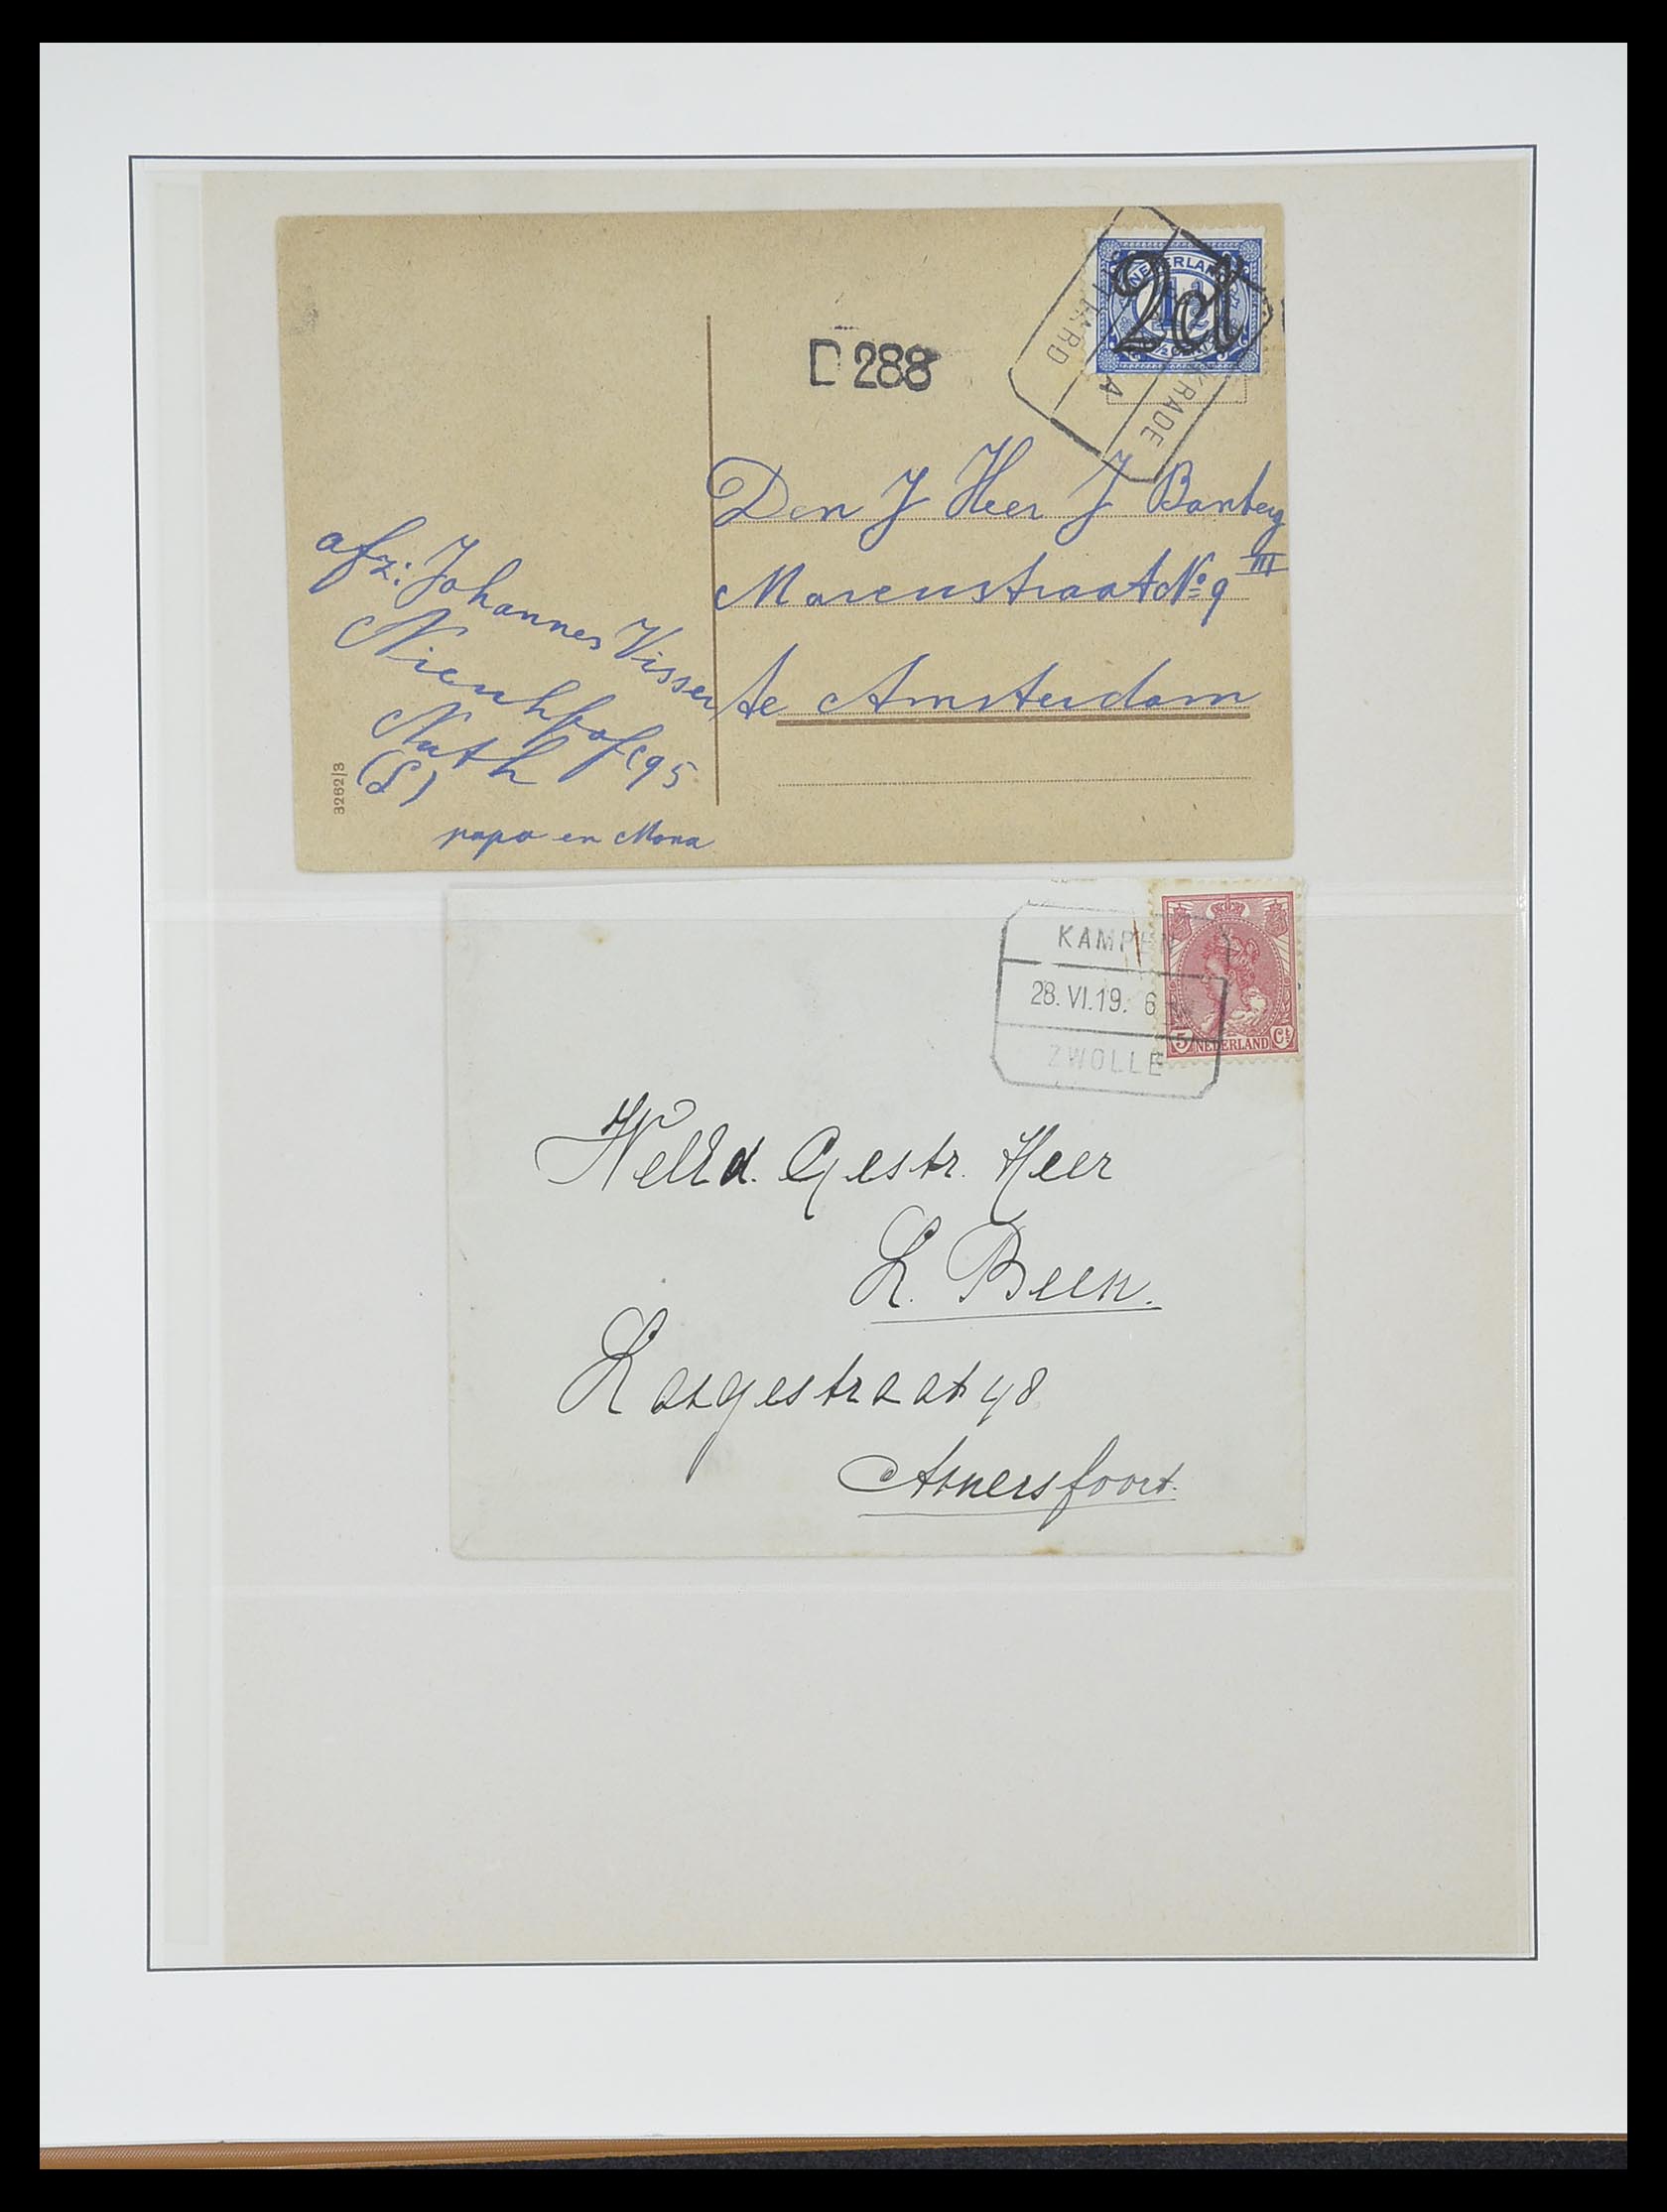 NEDERLAND
2ct
D 288
SITTARD
A
KRADE
Den J Heer J Bamberg
Marenstraat No 9 III
te Amsterdam
afz: Johannes Visser
Nienhhof C95
Nuth
(L)
papa en Mona
3262|3
KAMPEN
28.VI.19. 6
ZWOLLE
5 NEDERLAND Ct
WelEd. Gestr. Heer
L. Been.
Langestraat 48
Amersfoort.